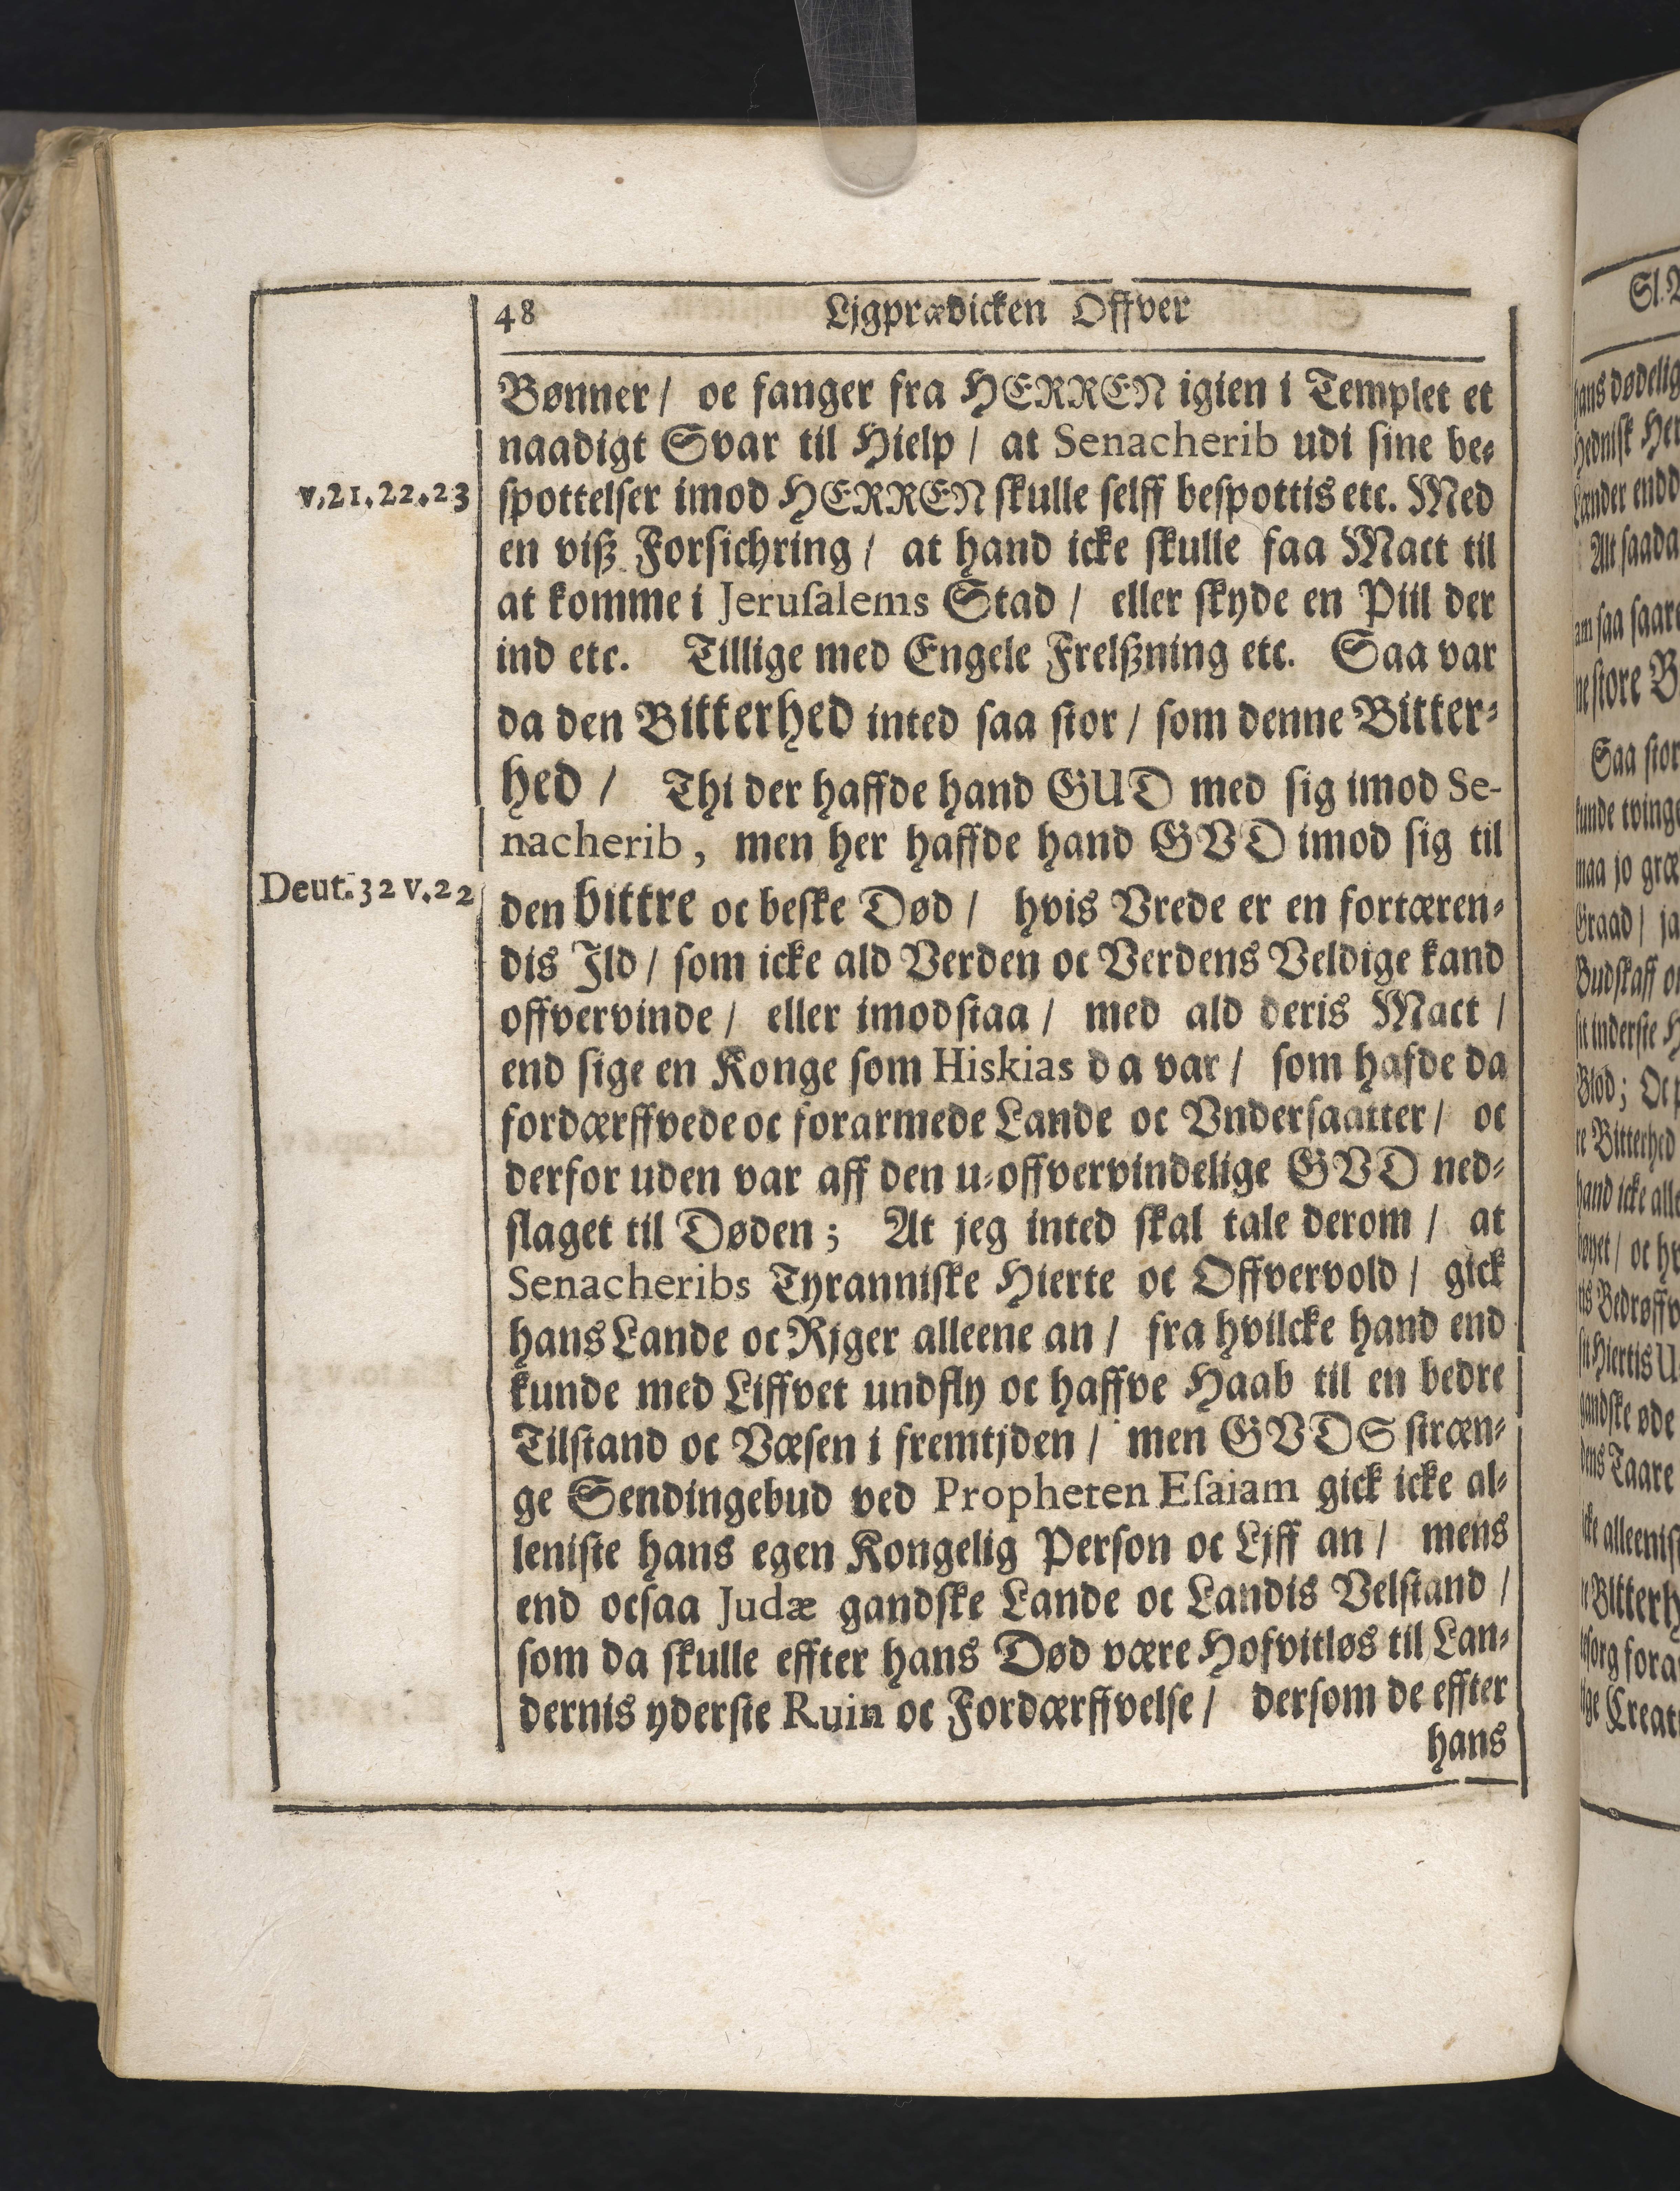 48 Ljgprædicken Offver
Bønner / oc fanger fra HERREN igien i Templet et
naadigt Svar til Hielp / at Senacherib udi sine be⸗
v.21.22.23
spottelser imod HERREN skulle selff bespottis etc. Med
en viß Forsichring / at hand icke skulle faa Mact til
at komme i Jeruſalems Stad / eller skyde en Piil der
ind etc. Tillige med Engele Frelßning etc. Saa var
da den Bitterhed inted saa stor / som denne Bitter⸗
hed / Thi der haffde hand GUD med sig imod Se-
nacherib, men her haffde hand GVD imod sig til
Deut. 32 v.22
den bittre oc beske Død / hvis Vrede er en fortæren⸗
dis Ild / som icke ald Verden oc Verdens Veldige kand
offvervinde / eller imodstaa / med ald deris Mact /
end sige en Konge som Hiskias da var / som hafde da
fordærffvede oc forarmede Lande oc Vndersaatter / oc
derfor uden var aff den u⸗offvervindelige GVD ned⸗
slaget til Døden; At jeg inted skal tale derom / at
Senacheribs Tyranniske Hierte oc Offvervold / gick
hans Lande oc Rjger alleene an / fra hvilcke hand end
kunde med Liffvet undfly oc haffve Haab til en bedre
Tilstand oc Væsen i fremtjden / men GVDS stræn⸗
ge Sendingebud ved Propheten Eſaiam gick icke al⸗
leniste hans egen Kongelig Person oc Ljff an / mens
end ocsaa Judæ gandske Lande oc Landis Velstand /
som da skulle effter hans Død være Hofvitløs til Lan⸗
dernis yderste Ruin oc Fordærffvelse / dersom de effter
hans